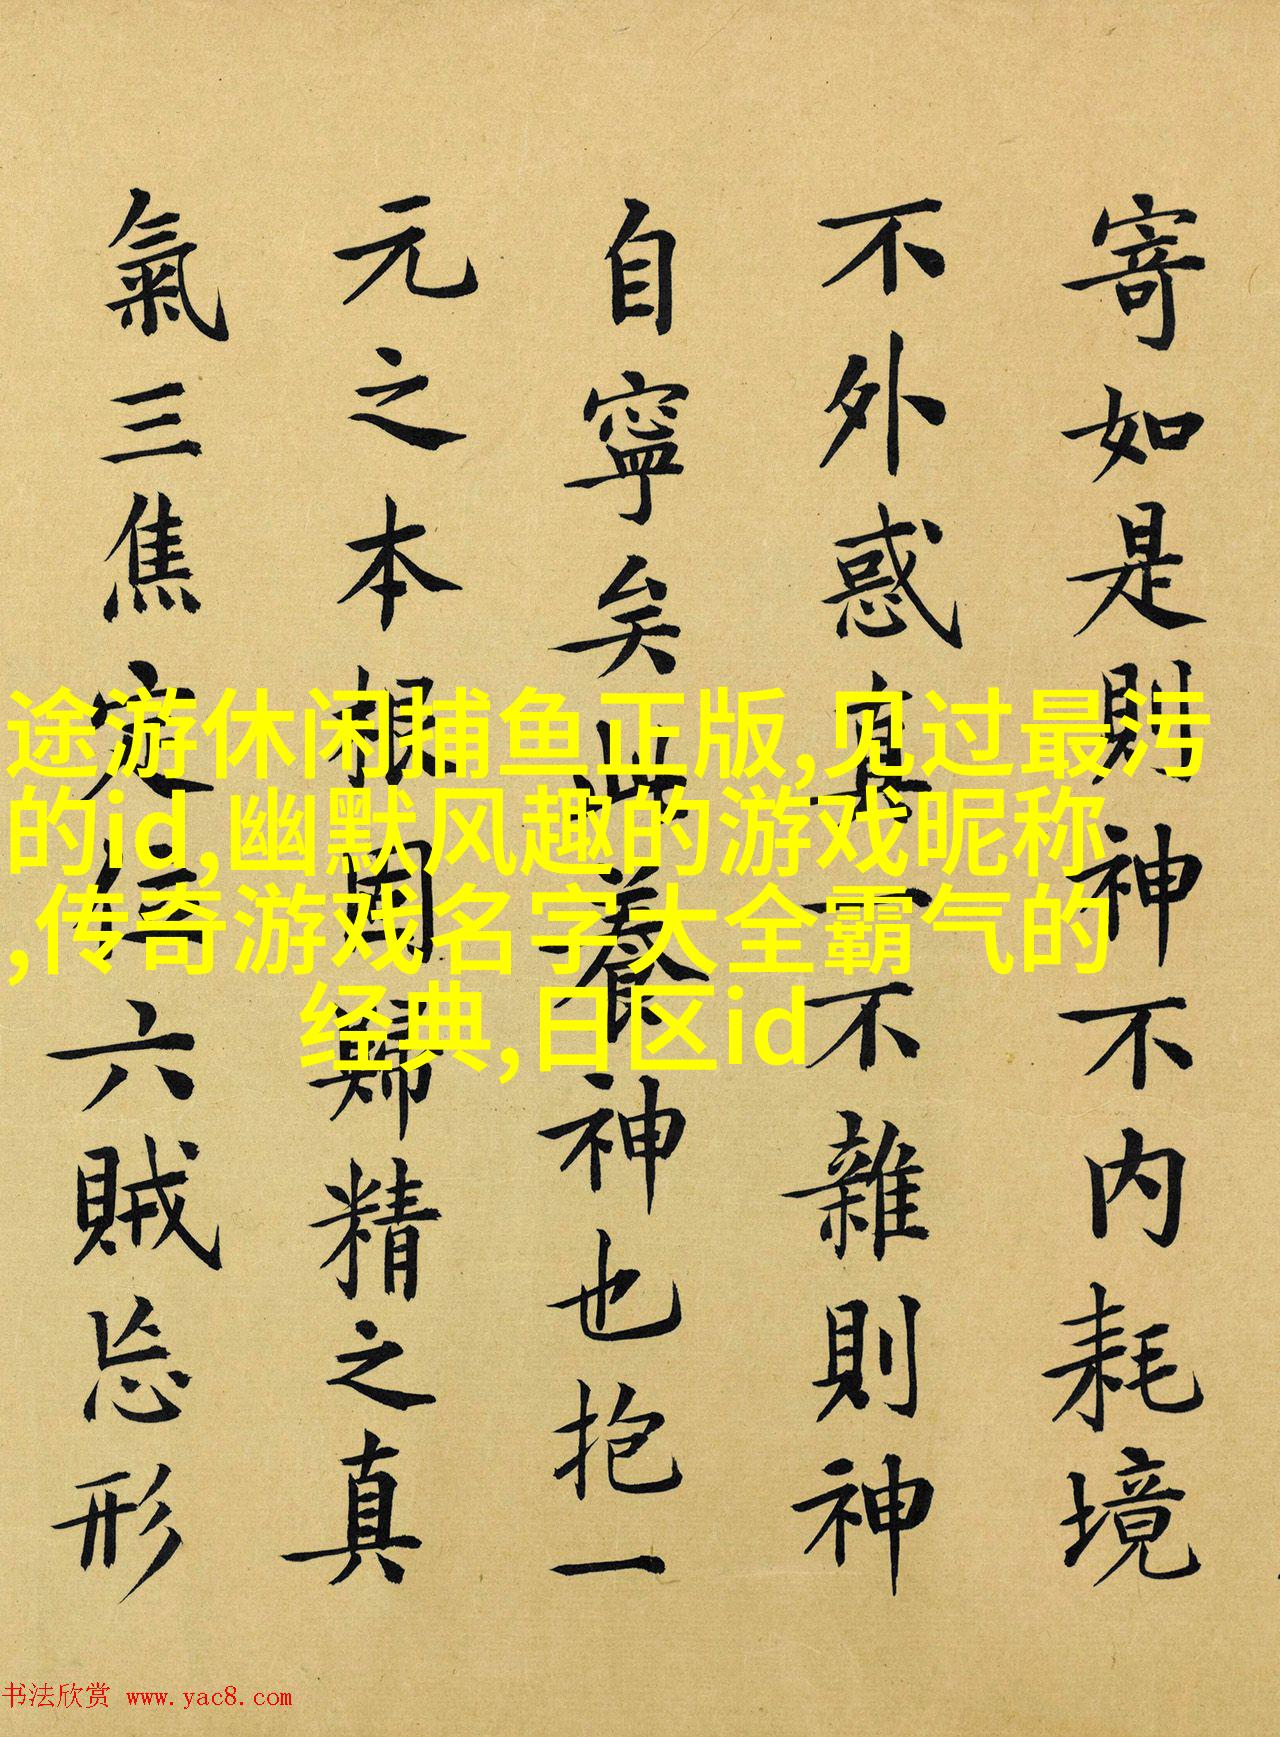 寄如是則神不内耗境
不外惑真一不雜則神
自寧矣此養神也抱一
元之本根固歸精之真
氣三焦定位六賊忘形
途游休闲捕鱼正版,见过最污
的id,幽默风趣的游戏昵称
,传奇游戏名字大全霸气的
经典,日区id
书法欣赏 www.yac8.com